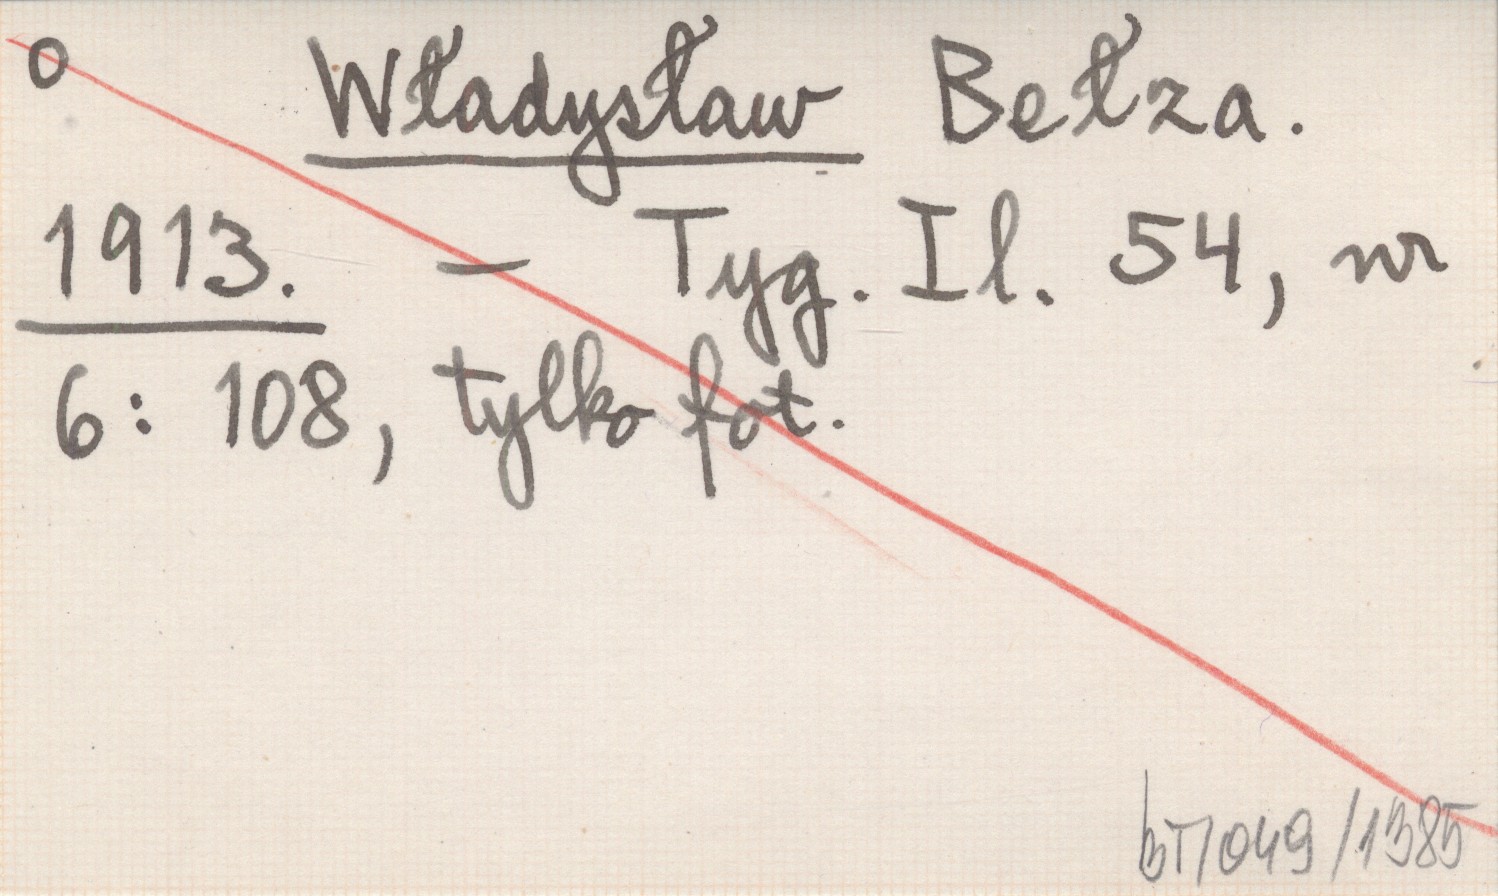 o Władysław Bełza.
1913. — Tyg. Il. 54, nr
6: 108, tylko fot.
bT/049/1385